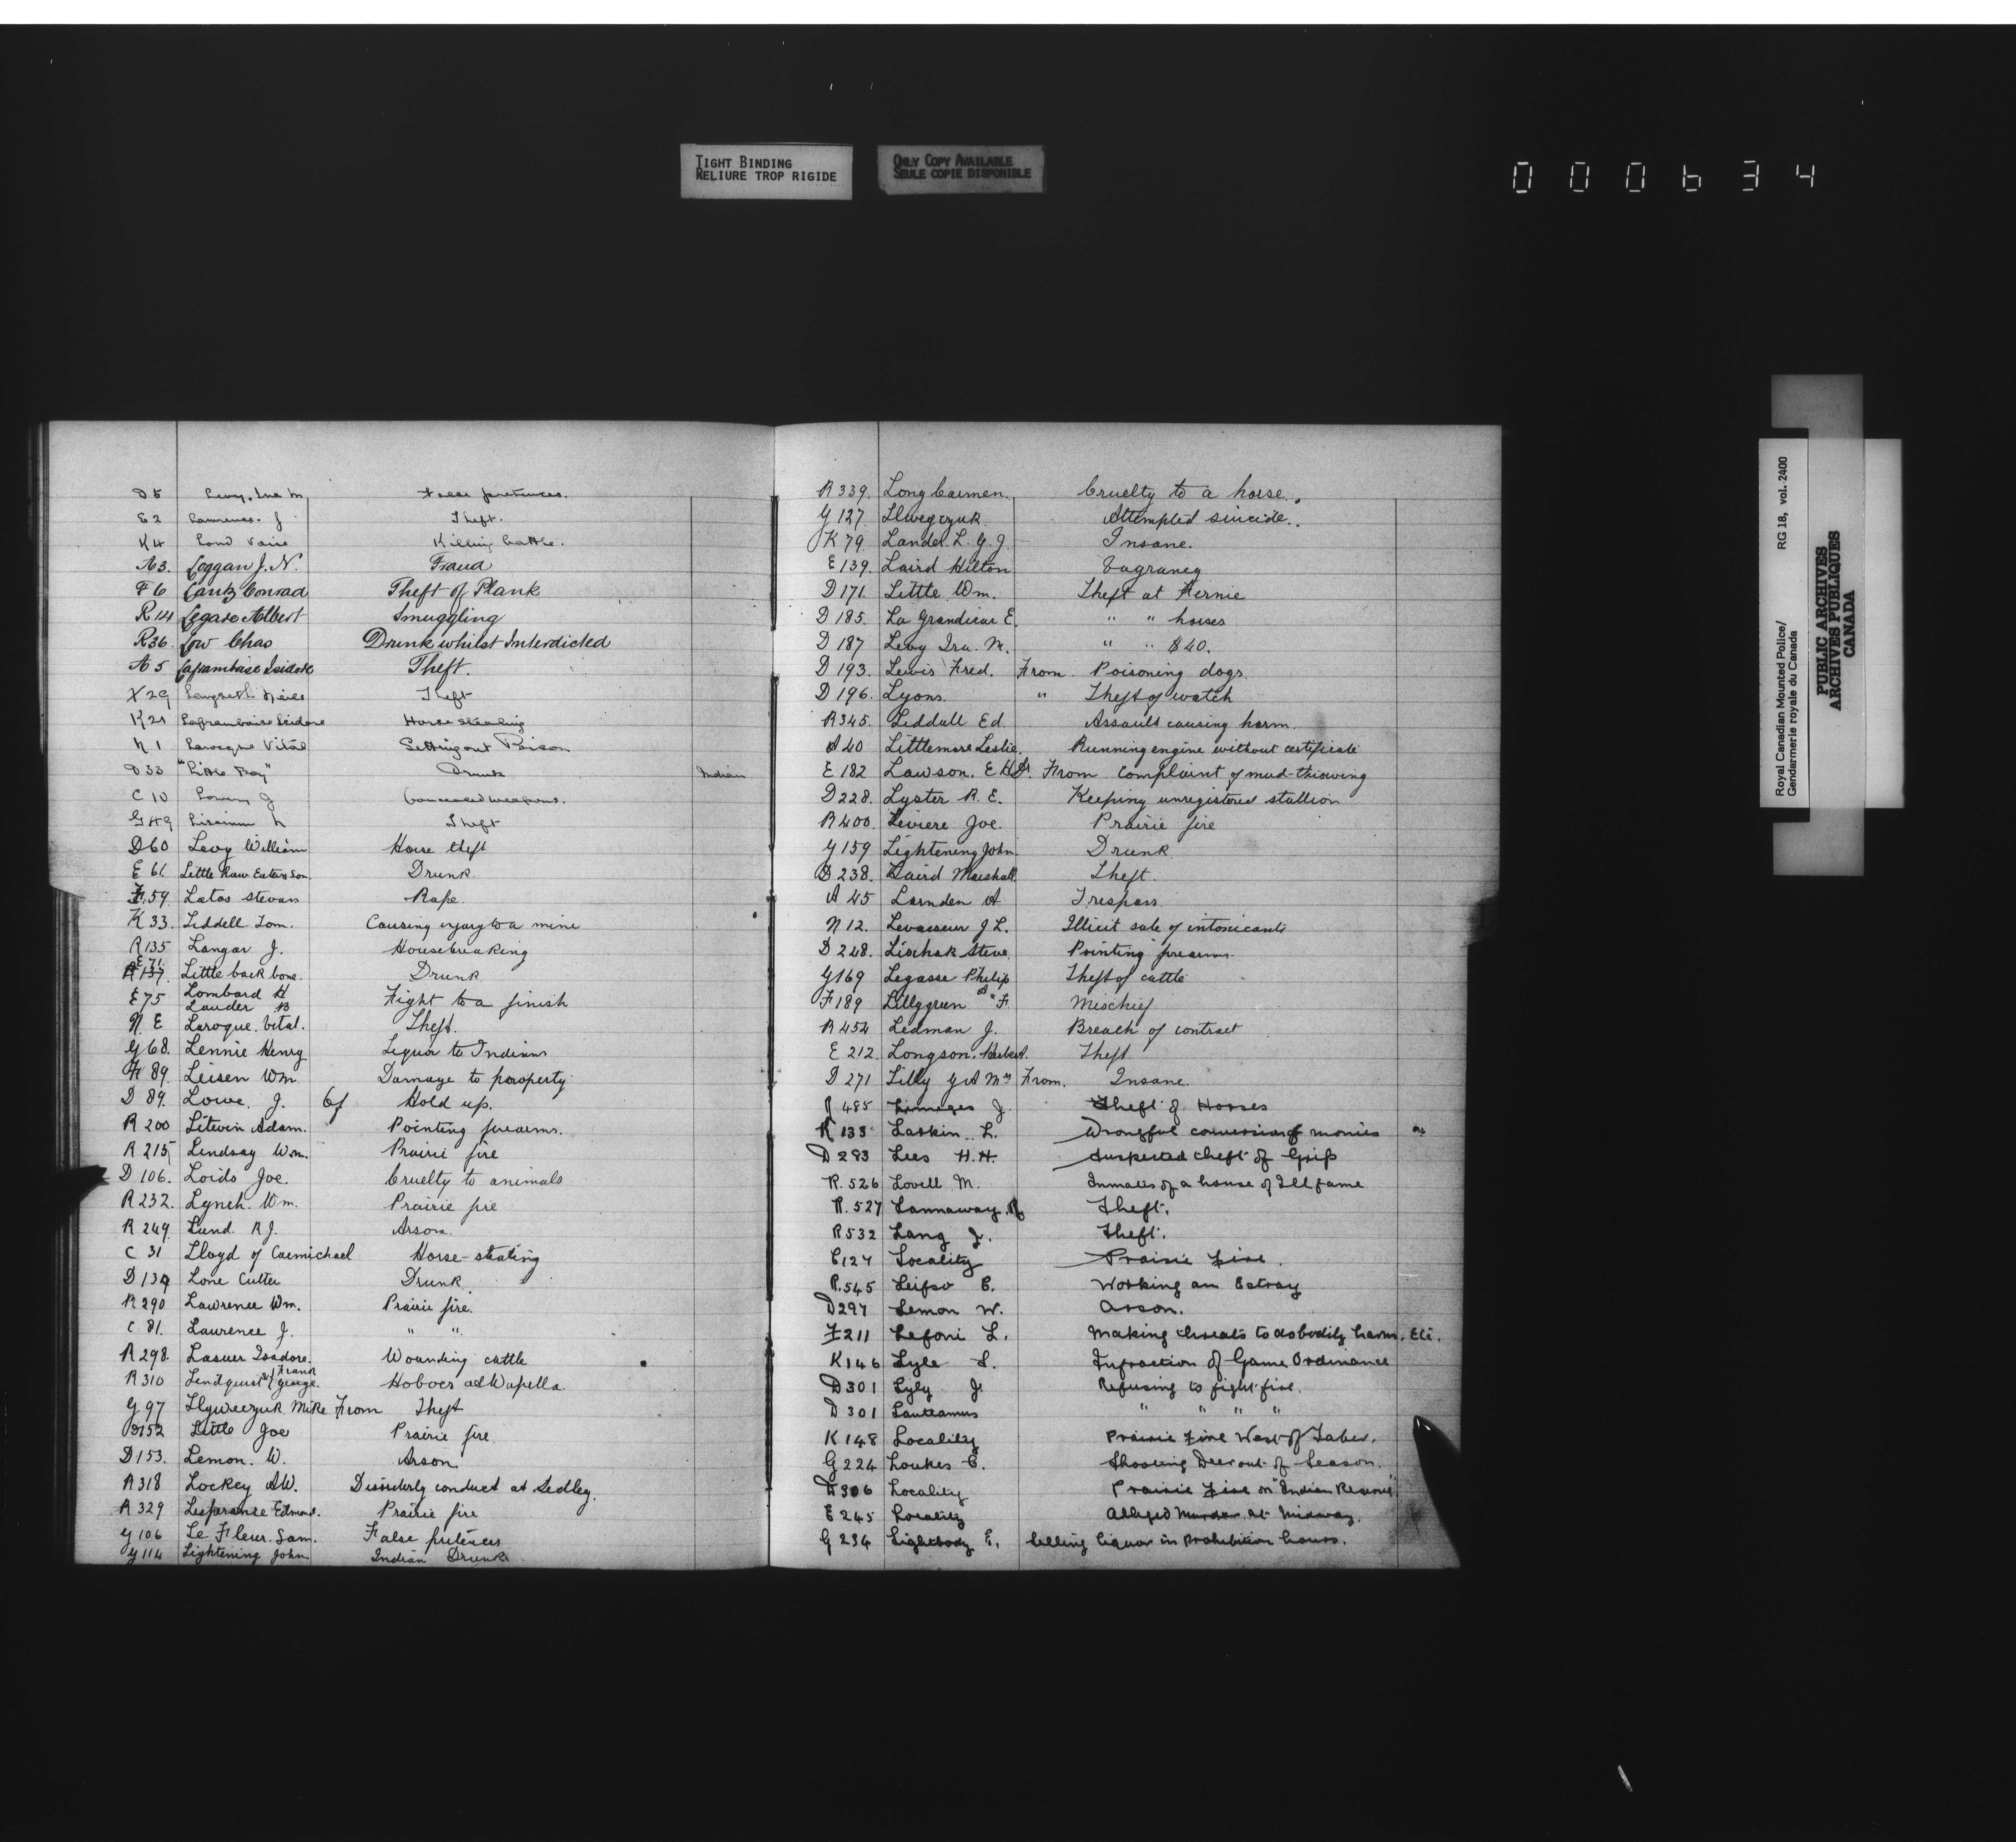 TIGHT BINDING
RELIURE TROP RIGIDE
ONLY COPY AVAILABLE
SEULE COPIE DISPONIBLE
000634
D 5 Levy, Ira M. False pretences.
E 2 Lawrence. J Theft.
K 4 Killing Cattle.
A 3. Loggan J. N. Fraud
F 6 Lantz Conrad Theft of Plank
R 14 Legare Albert Smuggling
R 36. Low Chas Drunk whilst Interdicted
A 5 Laframbaise Isidore Theft.
X 29 Theft
K 21 Laframbaise Isidore Horse stealing
N 1 Larocque Vital Setting out Poison
D 33 "Little Boy" Drunk Indian
C 10 Lowery J Concealed weapons.
G 49 Theft
D 60 Levy William Horse theft
E 61. Little Raw Eaters Son. Drunk.
F. 59. Latos Stevan Rape.
K 33. Liddell Tom. Causing injury to a mine
R 135 Langar J. Housebreaking
E 71.
R 137. Little back bone. Drunk
E 75 Lombard H
Lauder B Fight to a finish
N. E Laroque. Vital. Theft.
G 68. Lennie Henry Liquor to Indians
F 89. Leisen Wm Damage to paroperty
D 89. Lowe. J. Of Hold up.
R 200 Litwin Adam. Pointing firearms.
R 215 Lindsay Wm. Prairie fire
D 106. Loids Joe. Cruelty to animals
R 232. Lynch. Wm. Prairie fire
R 249. Lund. R J. Arson.
C 31 Lloyd of Carmichael Horse-stealing
D 139 Lone Cutter Drunk
R 290 Lawrence Wm. Prairie fire.
C 81. Laurence J. " "
R 298. Lasuer Isadore. Wounding cattle
R 310 Lendquist & Frank George. Hoboes at Wapella.
G 97 Llyweczuk Mike From Theft
D 152 Little Joe Prairie fire
D 153. Lemon. W. Arson
R 318 Lockey AW. Disorderly conduct at Sedley.
R 329 Lesperance Edmond. Prairie fire
G 106 Le Fleur. Sam. False pretences
G 114 Lightening John Indian Drunk
R 339. Long Carmen. Cruelty to a horse.
G 127. Llwegczuk Attempted suicide.
K 79. Lander. L. G. J. Insane.
E 139. Laird Hilton Vagrancy
D 171. Little Wm. Theft at Fernie
D 185. La Grandieur E. " " horses
D 187 Levy Ira. M. " " $40.
D 193. Lewis Fred. From Poisoning dogs
D 196. Lyons. " Theft of watch
R 345. Liddall Ed Assault causing harm.
A 40 Littlemore Leslie. Running engine without certificate
E 182 Lawson. E H Dr. From complaint of mud-throwing
D 228. Lyster R. E. Keeping unregistered stallion
R 400. Leviere Joe. Prairie fire
G 159 Lightening John. Drunk
D 238. Laird Marshall. Theft.
A 45 Larnden A Trespass
N 12. Levasseur J L. Illicit sale of intoxicants
D 248. Lischak Steve. Pointing firearms.
G 169 Legasse Philip Theft of cattle
F 189 Lillygreen A "F. Mischief
R 454 Ledman J. Breach of contract
E 212. Longson. Herbert. Theft
D 271 Lilly G A Mrs From. Insane.
R 485 Limoges J. Theft of Horses
K 133 Laskin. L. Wrongful conversion of monies
D 283 Lees H. H. Suspected theft of Grip
R. 526 Lovell M. Inmates of a house of Ill fame
R. 527 Lannaway. R Theft.
R 532 Lang J. Theft.
C 127 Locality Prairie Fire.
R. 545 Leifso E. Working an Estray
D 297 Lemon W. Arson.
F 211 Lefoni L. Making threats to do bodily harm. Etc.
K 146 Lyle S. Infraction of Game Ordinance
D 301 Lyly J. Refusing to fight fire.
D 301 Lauteamus " " " "
K 148 Locality Prairie Fire West of Taber.
G 224 Loukes E. Shooting Deer out of Season.
D 306 Locality Prairie Fire on "Indian Reserve"
E 245 Locality Alleged Murder at Midway.
G 234 Lightbody E. Selling liquor in Prohibition hours.
Royal Canadian Mounted Police/
Gendarmerie royale du Canada
RG 18, vol. 2400
PUBLIC ARCHIVES
ARCHIVES PUBLIQUES
CANADA